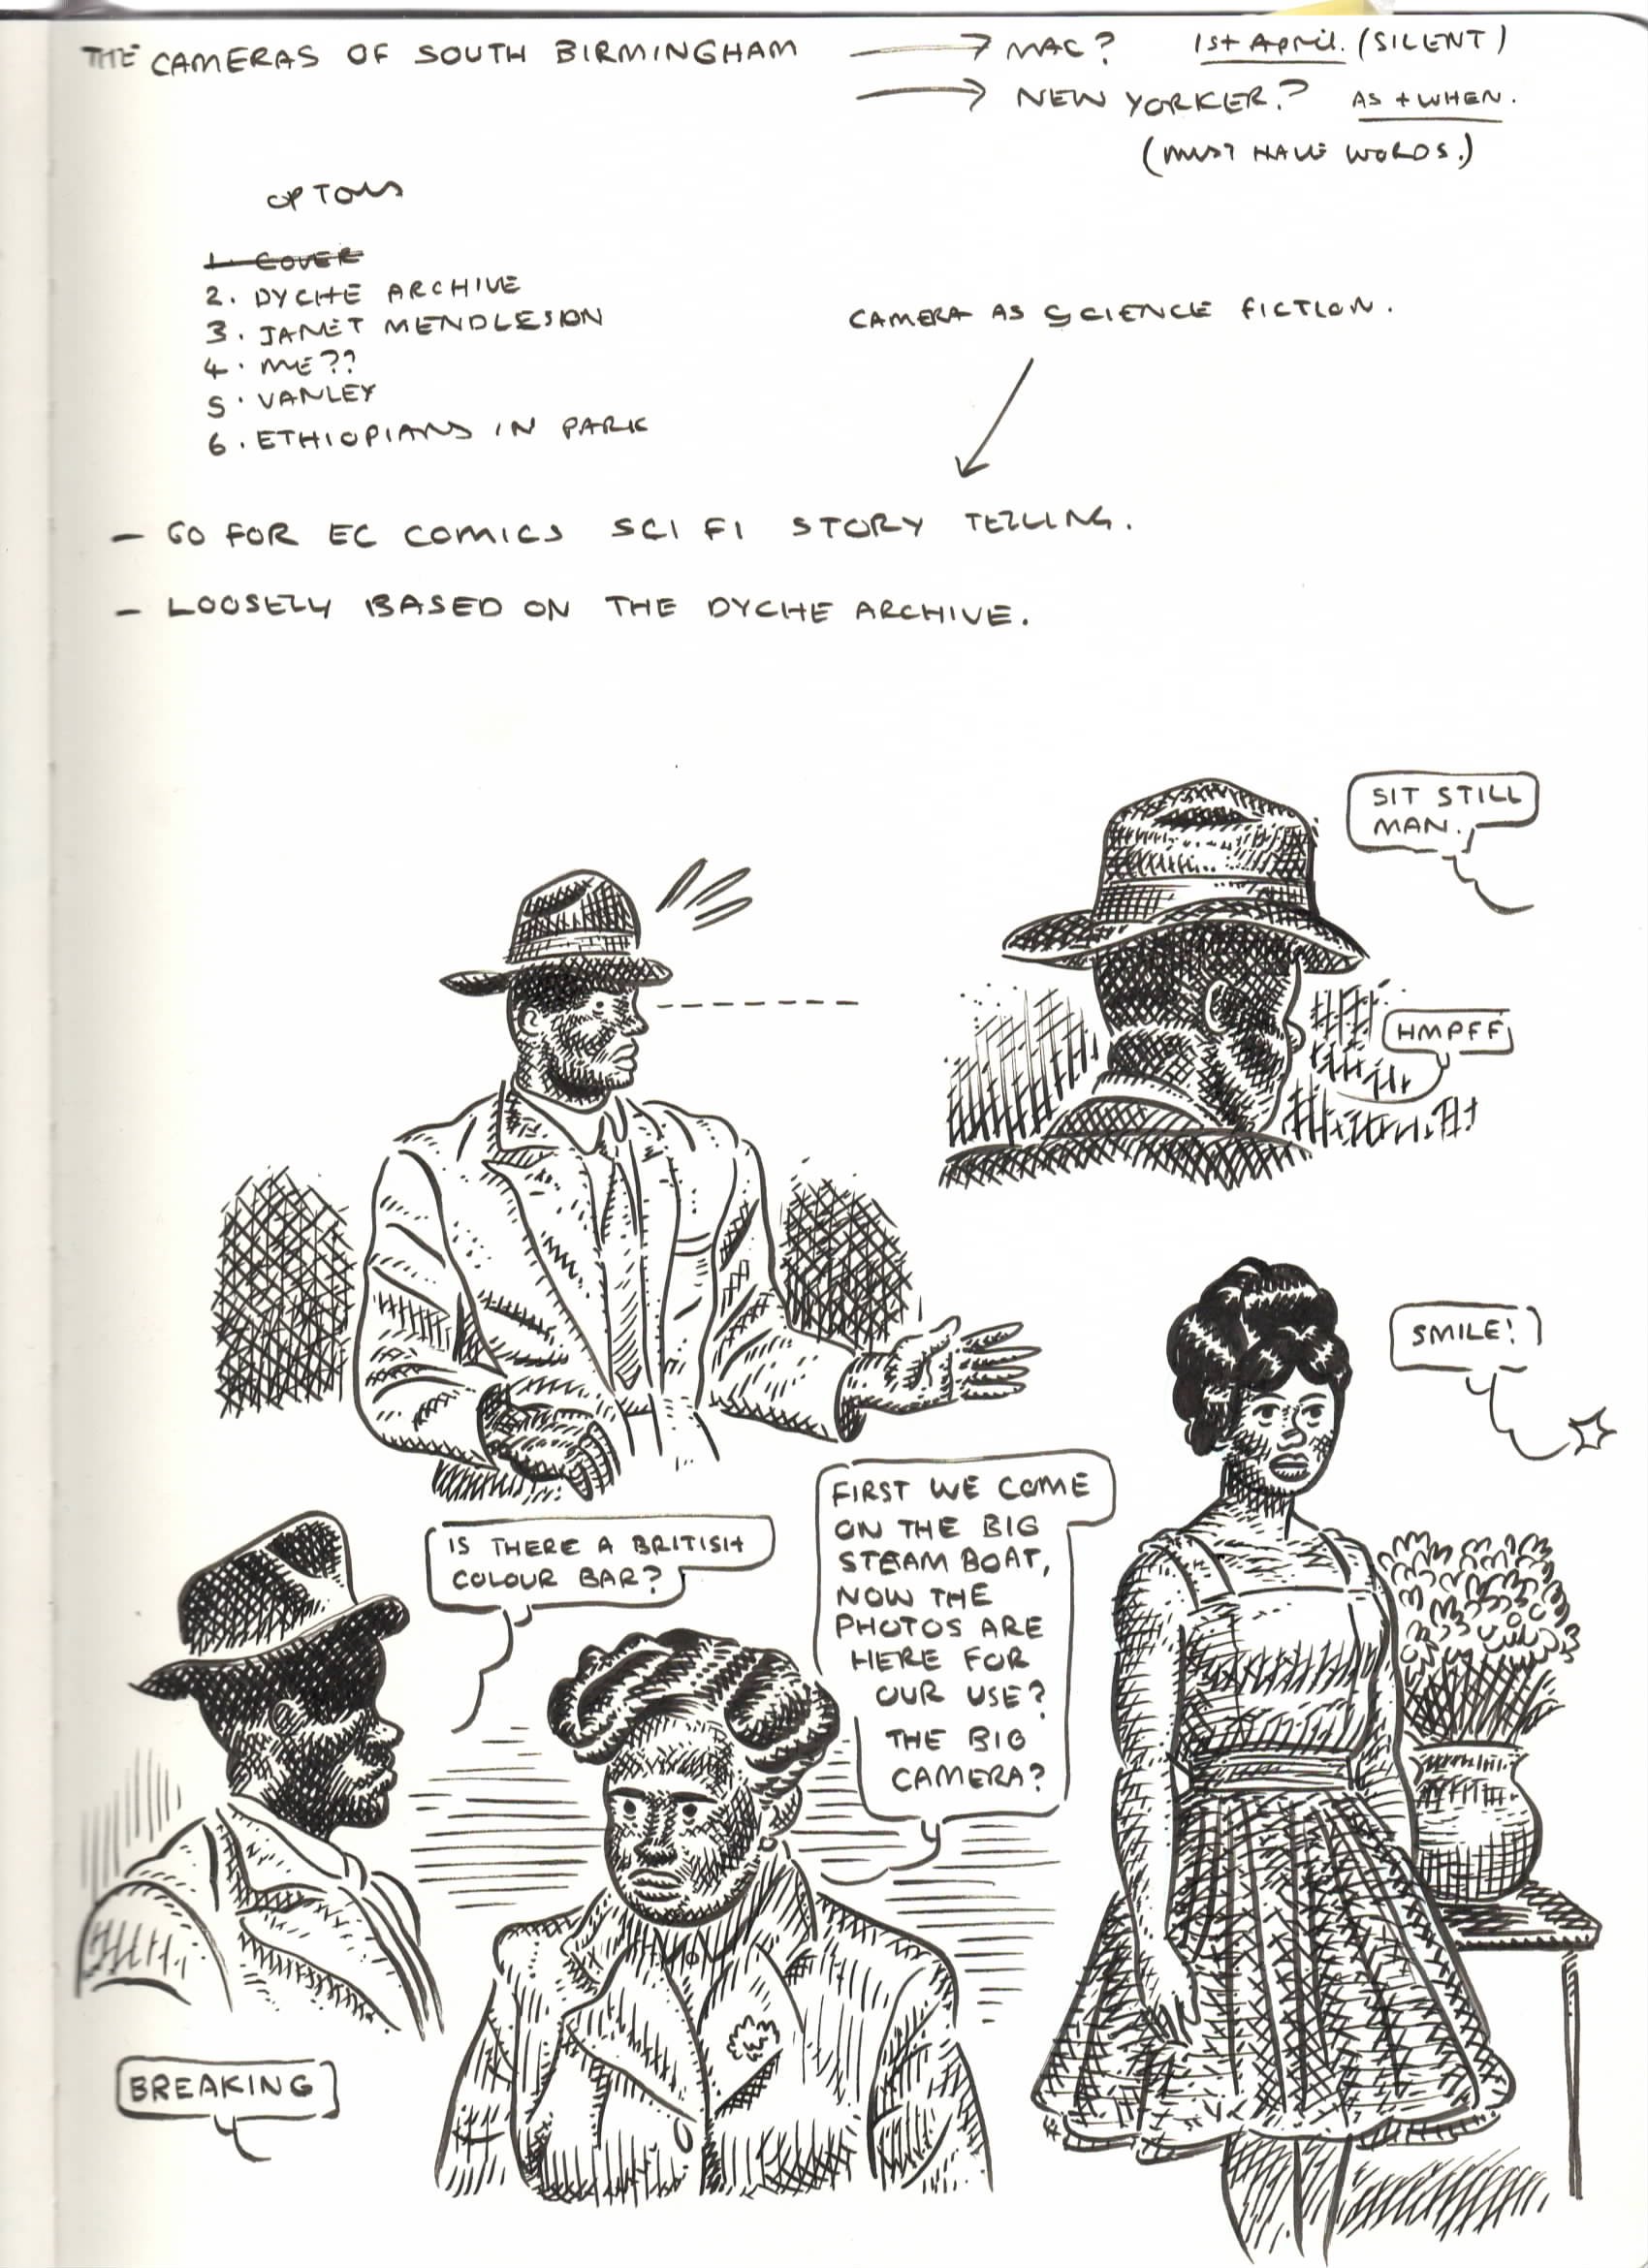 THE CAMERAS OF SOUTH BIRMINGHAM → MAC? 1st April. (SILENT)
→ NEW YORKER? AS + WHEN.
(MUST HAVE WORDS.)
OPTONS
1. COVER
2. DYCHE ARCHIVE
3. JANET MENDLESION
4. ME??
5. VANLEY
6. ETHIOPIANS IN PARK
CAMERA AS SCIENCE FICTION.
– GO FOR EC COMICS SCI FI STORY TELLING.
– LOOSELY BASED ON THE DYCHE ARCHIVE.
SIT STILL
MAN.
HMPFF
SMILE!
IS THERE A BRITISH
COLOUR BAR?
FIRST WE COME
ON THE BIG
STEAM BOAT,
NOW THE
PHOTOS ARE
HERE FOR
OUR USE?
THE BIG
CAMERA?
BREAKING